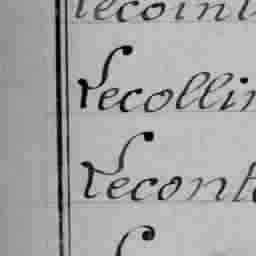 Lecoint
Lecollin
Lecont